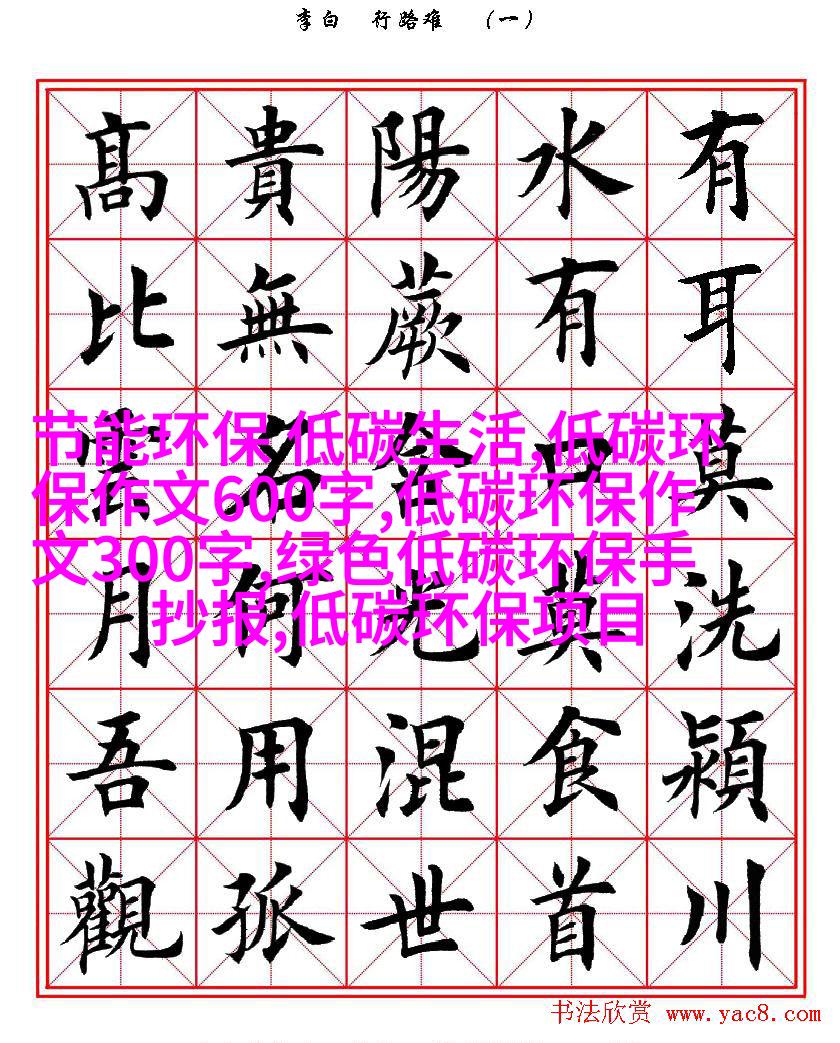 李白 行路难 （一）
有耳莫洗潁川
水有口莫食首
陽蕨含光混世
貴無名何用孤
高比雲月吾觀
节能环保 低碳生活,低碳环
保作文600字,低碳环保作
文300字,绿色低碳环保手
抄报,低碳环保项目
书法欣赏 www.yac8.com